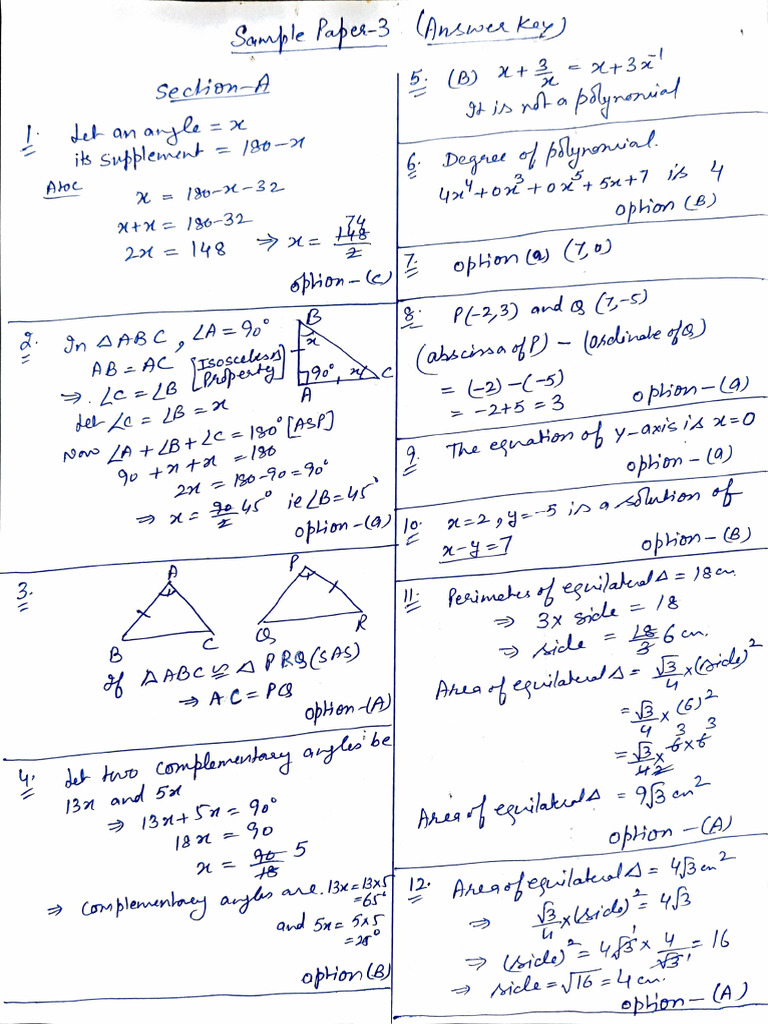 Sample Paper-3 (Answer Key)
Section-A
1. Let an angle = x
its supplement = 180-x
ATQC
x = 180-x-32
x+x = 180-32
2x = 148 ⇒ x = 148/2 74
option-(c)
2. In △ABC, ∠A = 90°
AB = AC [Isosceless Property]
⇒ ∠C = ∠B
Let ∠C = ∠B = x
Now ∠A + ∠B + ∠C = 180° [ASP]
90 + x + x = 180
2x = 180-90 = 90°
⇒ x = 90/2 45° ie ∠B = 45°
option-(a)
B
x
90° x C
A
3.
A P
B C Q R
If △ABC ≅ △PRQ (SAS)
⇒ AC = PQ
option-(A)
4. Let two complementary angles be
13x and 5x
⇒ 13x + 5x = 90°
18x = 90
x = 90/18 5
⇒ complementary angles are 13x = 13×5
= 65°
and 5x = 5×5
= 25°
option (B)
5. (B) x + 3/x = x + 3x⁻¹
It is not a polynomial
6. Degree of polynomial.
4x⁴ + 0x³ + 0x⁵ + 5x + 7 is 4
option (B)
7. option (a) (7,0)
8. P(-2,3) and Q (7,-5)
(abscissa of P) - (ordinate of Q)
= (-2) - (-5)
= -2+5 = 3 option-(a)
9. The equation of y-axis is x=0
option-(a)
10. x=2, y=-5 is a solution of
x-y=7 option-(B)
11. Perimeter of equilateral △ = 18 cm
⇒ 3 x side = 18
⇒ side = 18/3 6 cm.
Area of equilateral △ = √3/4 × (side)²
= √3/4 × (6)²
= √3/4 2 × 6 3 × 6 3
Area of equilateral △ = 9√3 cm²
option-(A)
12. Area of equilateral △ = 4√3 cm²
⇒ √3/4 × (side)² = 4√3
⇒ (side)² = 4√3 1 × 4/√3 1 = 16
⇒ side = √16 = 4 cm.
option-(A)